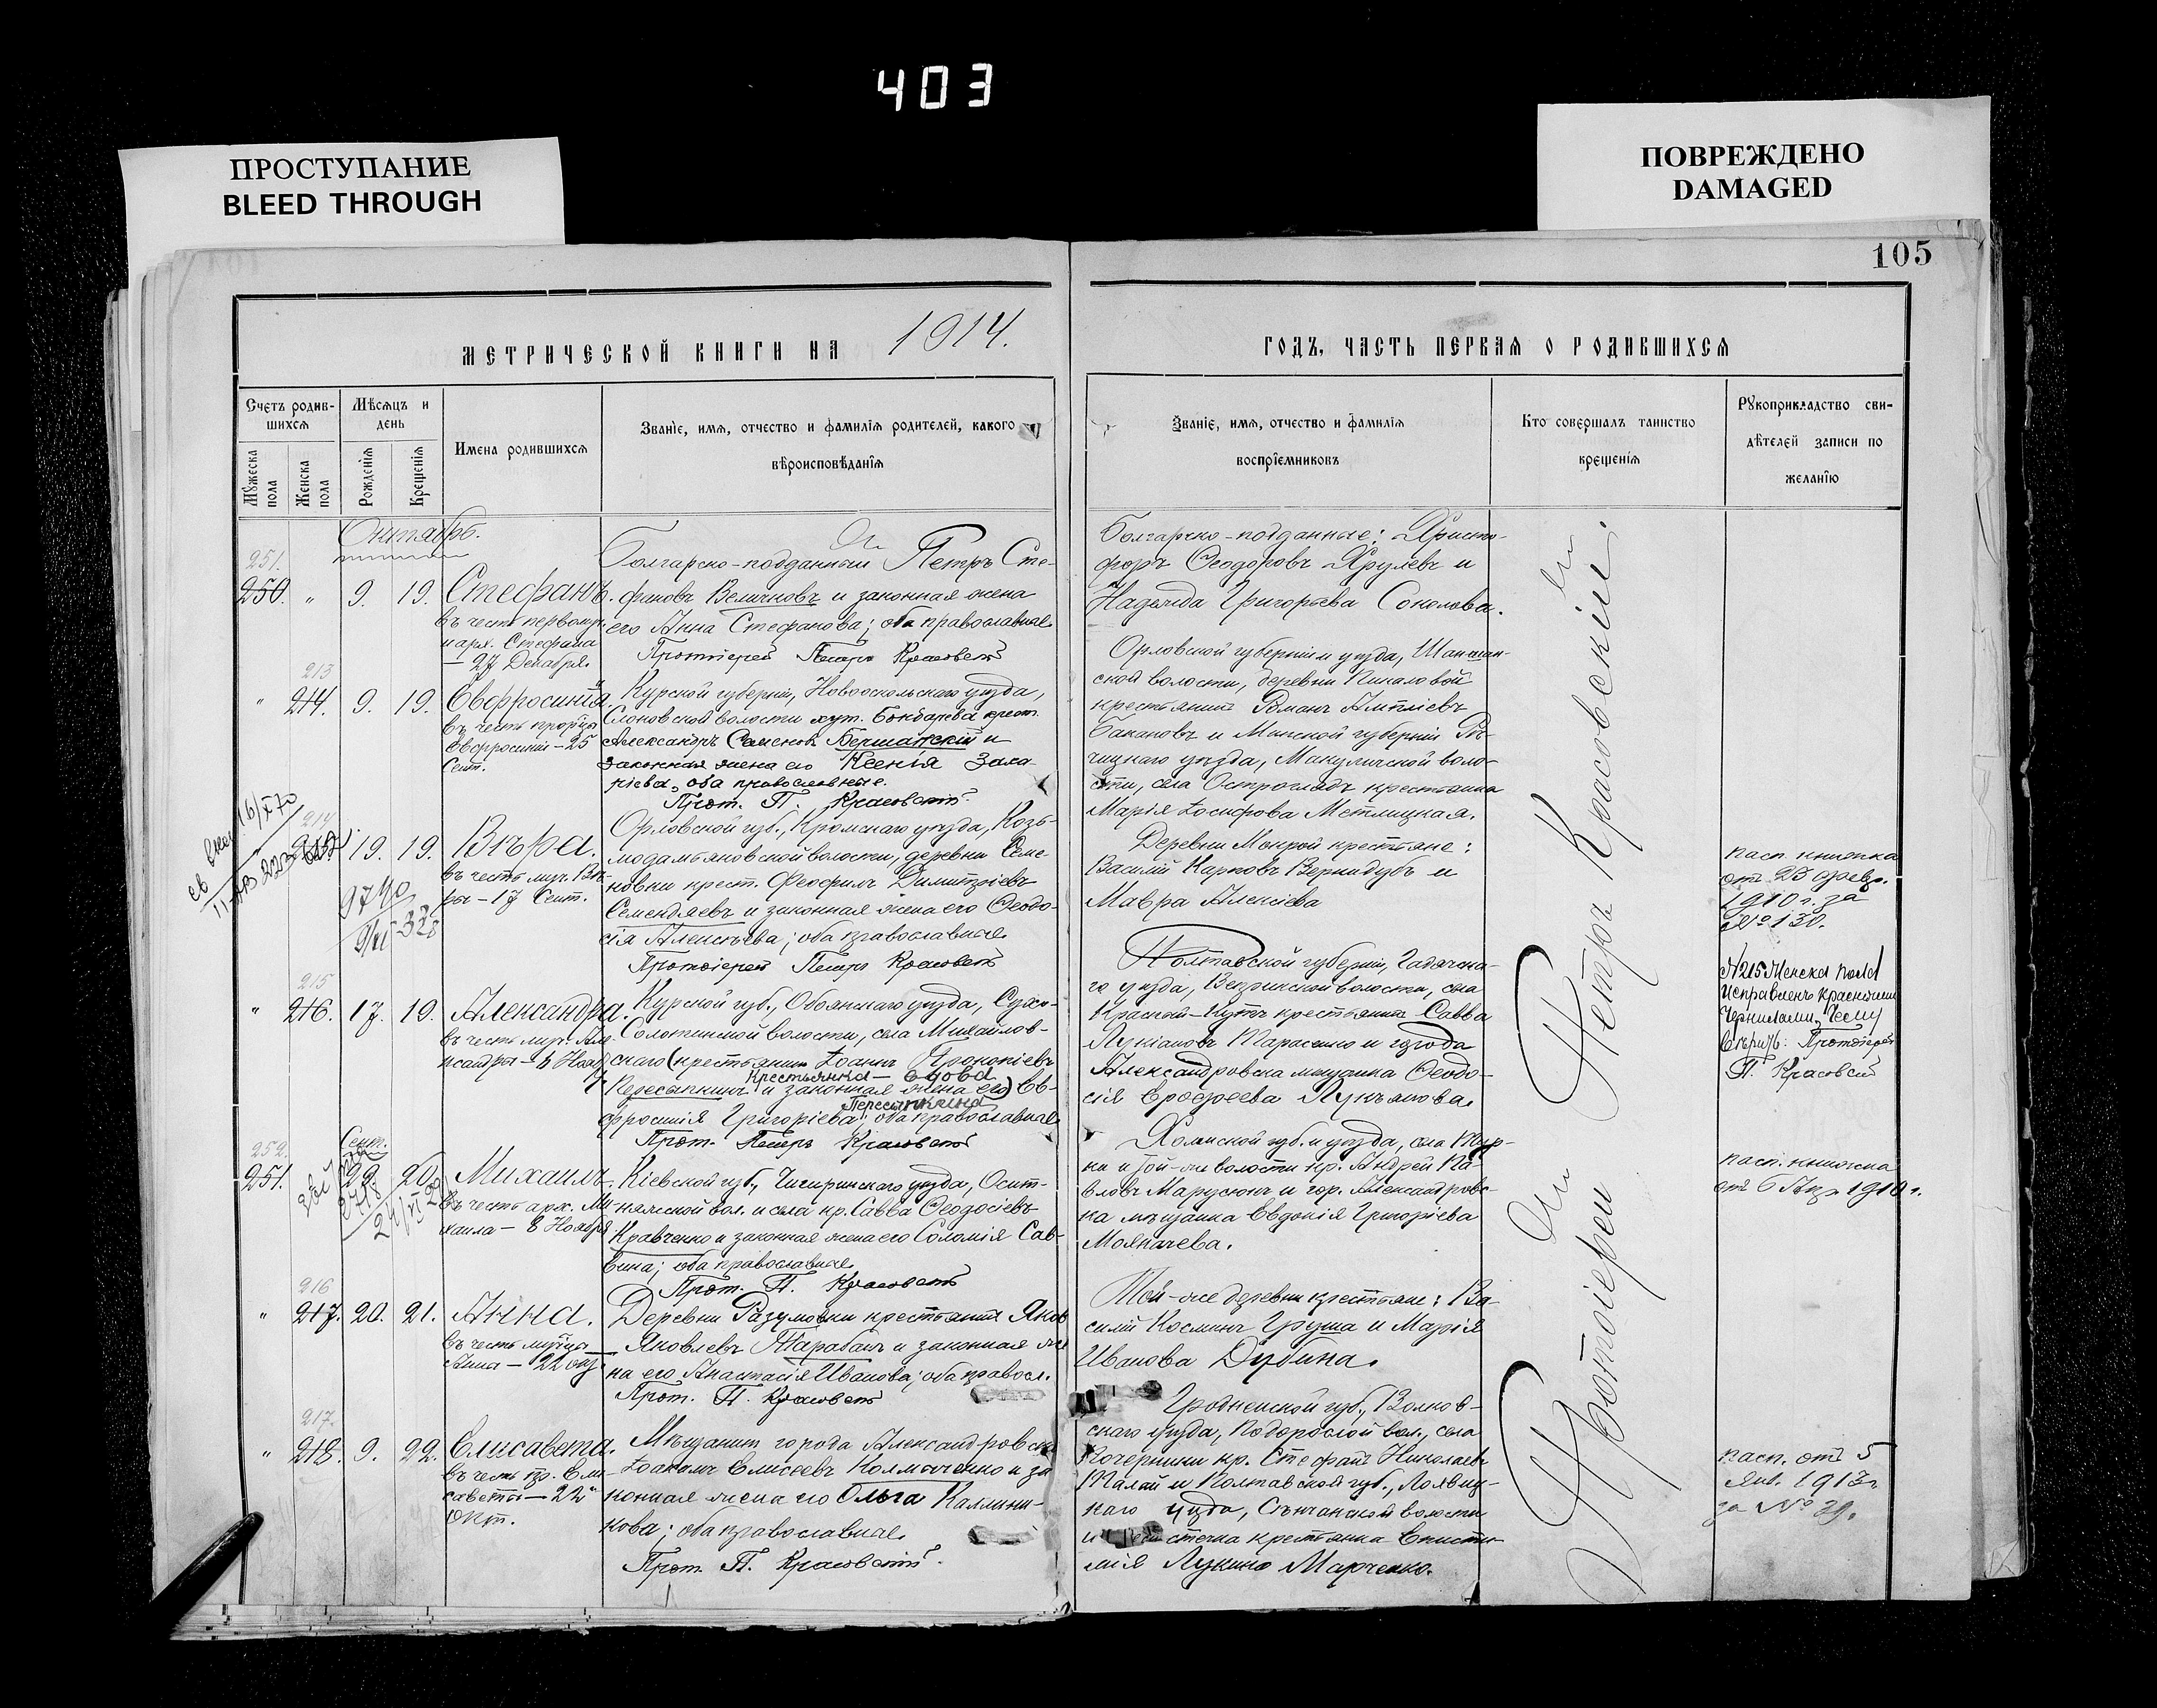 403
ПРОСТУПАНИЕ
BLEED THROUGH
ПОВРЕЖДЕНО
DAMAGED
105
МЕТРИЧЕСКОЙ КНИГИ НА 1914.
ГОДЪ, ЧАСТЬ ПЕРВАЯ О РОДИВШИХСЯ
Счетъ родив-
шихся
Мѣсяцъ и
день
Мужеска пола
Женска пола
Рожденія
Крещенія
Имена родившихся
Званіе, имя, отчество и фамилія родителей, какого
вѣроисповѣданія
Званіе, имя, отчество и фамилія
воспріемниковъ
Кто совершалъ таинство
крещенія
Рукоприкладство сви-
дѣтелей записи по
желанію
Октябрь.
251.
250. " 9. 19. Стефанъ.
въ честь первомуч.
и арх. Стефана
— 27 Декабря.
Болгарско-подданный Петръ Сте-
фановъ Величковъ и законная жена
его Анна Стефанова; оба православные
Протоіерей Петръ Красовскій
Болгарско-подданные: Христо-
форъ Ѳеодоровъ Хрулевъ и
Надежда Григорьева Соколова.
213
" 214. 9. 19. Евфросинія.
въ честь
Евфросиніи — 25
Сент.
Курской губерніи, Новооскольскаго уѣзда,
Слоновской волости хут. Бондарева крест.
Александръ Семеновъ и
законная жена его Ксенія Заха-
ріева, оба православные.
Прот. П. Красовскій.
Орловской губерніи и уѣзда,
ской волости, деревни
крестьянинъ Романъ
и Минской губерніи Рѣ-
чицкаго уѣзда, Микуличской воло-
сти, села Остроглядъ крестьянка
Марія Іосифова Метлицкая.
214
19. 19. Вѣра.
въ честь муч. Вѣ-
ры — 17 Сент.
Орловской губ., Кромскаго уѣзда, Козь-
модамьяновской волости, деревни Семе-
новки крест. Ѳеофилъ Димитріевъ
Семендяевъ и законная жена его Ѳеодо-
сія Алексѣева; оба православные
Протоіерей Петръ Красовскій
Деревни Мокрой крестьяне:
Василій Карповъ Вернидубъ и
Мавра Алексіева
пасп. книжка
отъ 25 февр.
1910 г. за
№ 130.
215
" 216. 17. 19. Александра.
въ честь муч. Але-
ксандры — 6 Нояб.
Курской губ., Обоянскаго уѣзда, Сухо-
Солотинской волости, села Михайлов-
скаго (крестьянинъ Іоаннъ Прокопіевъ
Крестьянка — вдова
Пересыпкинъ и законная жена его) Ев-
Пересыпкина
фросинія Григоріева; оба православные
Прот. Петръ Красовскій
Полтавской губерніи, Гадячска-
го уѣзда, Веприкской волости, села
Красной-Лукъ крестьянинъ Савва
Лукіановъ Тарасенко и города
Александровска мѣщанка Ѳеодо-
сія Ерофеева Лукьянова.
№ 215 Женска пола
исправленъ красными
чернилами. Чему
вѣрить: Протоіерей
П. Красовскій
252. Сент.
251. 29. 20. Михаилъ.
въ честь арх. Ми-
хаила — 8 Ноября
Кіевской губ., Чигиринскаго уѣзда, Осит-
няжской вол. и села кр. Савва Ѳеодосіевъ
Кравченко и законная жена его Соломія Сав-
вина; оба православные
Прот. П. Красовскій
Холмской губ. и уѣзда, села Тур-
ка и той-же волости кр. Андрей Па-
вловъ Марусюкъ и гор. Александровс-
ка мѣщанка Евдокія Григоріева
пасп. книжка
отъ 6 Апр. 1910 г.
216
" 217. 20. 21. Анна.
въ честь муч-ца
Анна — 22 окт.
Деревни Разумовки крестьянинъ Яковъ
Яковлевъ Тарабанъ и законная же-
на его Анастасія Иванова; оба правосл.
Прот. П. Красовскій
Той-же деревни крестьяне: Ва-
силій Косминъ Груша и Марія
Иванова Дубина.
217.
" 218. 9. 22. Елисавета.
въ честь пр. Ели-
саветы — 22
Окт.
Мѣщанинъ города Александровска
Іоакимъ Елисѣевъ Колмыченко и за-
конная жена его Ольга Каллини-
кова; оба православные
Прот. П. Красовскій.
Гродненской губ., Волков-
скаго уѣзда, Подоросской вол., села
кр. Стефанъ Николаевъ
Малай и Полтавской губ., Лохвиц-
каго уѣзда, Сѣнчанской волости
и мѣстечка крестьянка Еписти-
мія Лукина Марченко.
пасп. отъ 5
Янв. 1913 г.
за № 29.
Протоіерей Петръ Красовскій.